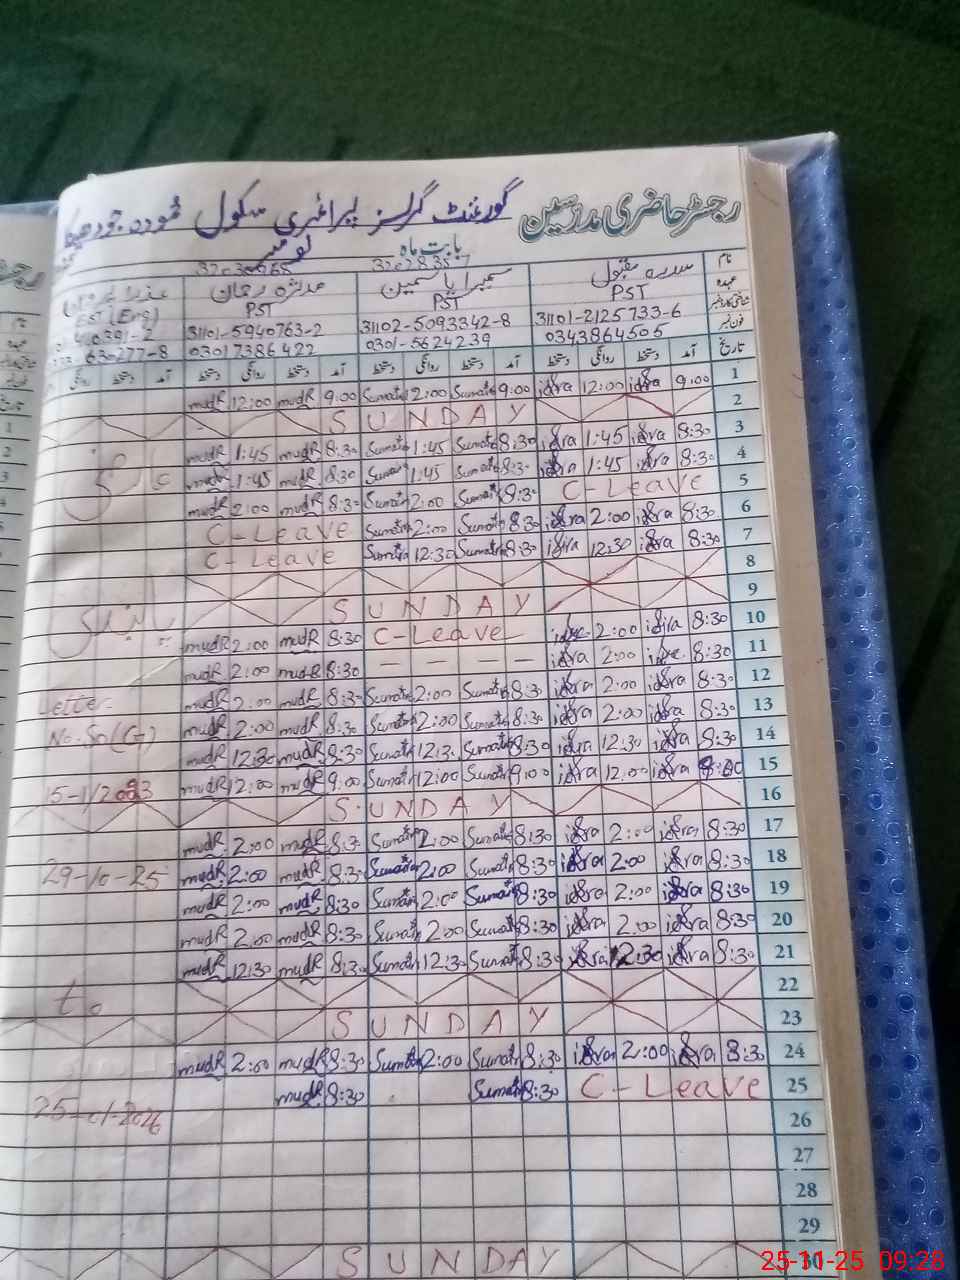 رجسٹر حاضری مدرسین گورنمنٹ گرلز پرائمری سکول
بابت ماہ نومبر
32028357 32030665
نام سدرہ مقبول سمیرا یاسمین مدثرہ رحمان
عہدہ PST PST PST EST (Eng)
شناختی کارڈ نمبر 31101-2125733-6 31102-5093342-8 31101-5940763-2
فون نمبر 0343864505 0301-5624239 03017386422
تاریخ آمد دستخط روانگی دستخط آمد دستخط روانگی دستخط آمد دستخط روانگی دستخط آمد دستخط روانگی
mudR 12:00 mudR 9.00 Sumaira 12:00 Sumaira 9.00 idra 12:00 idra 9.00 1
SUNDAY 2
mudR 1:45 mudR 8:30 Sumaira 1:45 Sumaira 8:30 idra 1:45 idra 8:30 3
mudR 1:45 mudR 8:30 Sumaira 1:45 Sumaira 8:30 idra 1:45 idra 8:30 4
mudR 2:00 mudR 8:30 Sumaira 2:00 Sumaira 8:30 C-Leave 5
C-Leave Sumaira 2:00 Sumaira 8:30 idra 2:00 idra 8:30 6
C-Leave Sumaira 12:30 Sumaira 8:30 idra 12:30 idra 8:30 7
8
SUNDAY 9
mudR 2:00 mudR 8:30 C-Leave idra 2:00 idra 8:30 10
mudR 2:00 mudR 8:30 — — — — idra 2:00 idra 8:30 11
Letter mudR 2:00 mudR 8:30 Sumaira 2:00 Sumaira 8:30 idra 2:00 idra 8:30 12
No. SO(G) mudR 2:00 mudR 8:30 Sumaira 2:00 Sumaira 8:30 idra 2:00 idra 8:30 13
mudR 12:30 mudR 8:30 Sumaira 12:30 Sumaira 8:30 idra 12:30 idra 8:30 14
15-1/2023 mudR 12:00 mudR 9.00 Sumaira 12:00 Sumaira 9.00 idra 12:00 idra 15
SUNDAY 16
mudR 2:00 mudR 8:30 Sumaira 2:00 Sumaira 8:30 idra 2:00 idra 8:30 17
29-10-25 mudR 2:00 mudR 8:30 Sumaira 2:00 Sumaira 8:30 idra 2:00 idra 8:30 18
mudR 2:00 mudR 8:30 Sumaira 2:00 Sumaira 8:30 idra 2:00 idra 8:30 19
mudR 2:00 mudR 8:30 Sumaira 2:00 Sumaira 8:30 idra 2:00 idra 8:30 20
mudR 12:30 mudR 8:30 Sumaira 12:30 Sumaira 8:30 idra 12:30 idra 8:30 21
to 22
SUNDAY 23
mudR 2:00 mudR 8:30 Sumaira 2:00 Sumaira 8:30 idra 2:00 idra 8:30 24
25-01-2026 mudR 8:30 Sumaira 8:30 C-Leave 25
26
27
28
29
SUNDAY 30
25-11-25 09:28